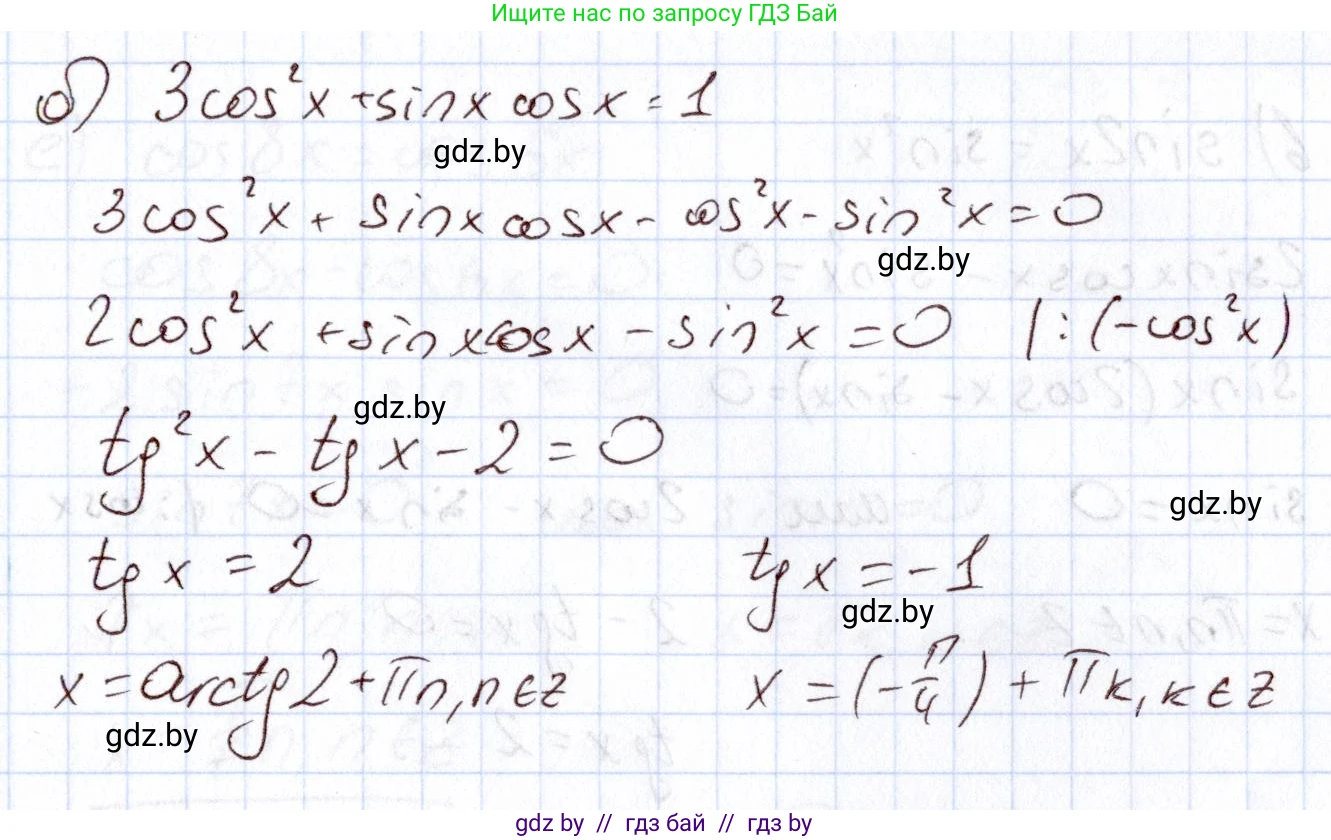 Ищите нас по запросу ГДЗ Бай
б) 3cos²x + sinx cosx = 1
gdz.by
3cos²x + sinx cosx - cos²x - sin²x = 0
gdz.by
2cos²x + sinx cosx - sin²x = 0 | : (-cos²x)
gdz.by
tg²x - tg x - 2 = 0
gdz.by
tg x = 2 tg x = -1
gdz.by
x = arctg 2 + πn, n ∈ z x = (-π/4) + πк, к ∈ z
gdz.by
gdz by // гдз бай // гдз by